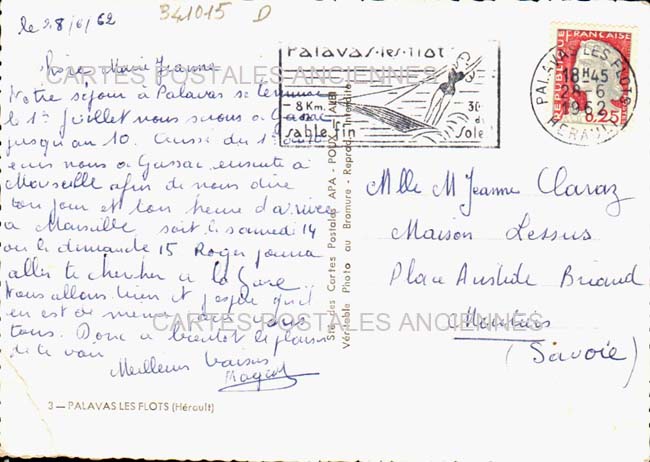 341015 D
le 28/6/62
Marie Jeanne
CARTES POSTALES ANCIENNES
Notre séjour à Palavas se termine
le 1er juillet nous serons à
jusqu'au 10. écris
nous à ensuite à
Marseille afin de nous dire
ton jour et ton heure d'arrivée
à Marseille soit le samedi 14
ou le dimanche 15 Roger pourra
aller te chercher à la Gare.
Nous allons bien et j'espère qu'il
en est de même pour vous
tous. Donc à bientôt le plaisir
de te voir
Meilleurs baisers
CARTES POSTALES ANCIENNES
3 — PALAVAS LES FLOTS (Hérault)
Sté des Cartes Postales APA - POUX - ALBI
Véritable Photo au Bromure - Reprod. Interdite
Palavas-les-flots
8 Km.
de
sable fin
30
de
Sole
PALAVAS LES FLOTS
18H45
28-6
1962
HERAULT
REPUBLIQUE FRANCAISE
0,25
Mlle M Jeanne Claraz
Maison Lessus
Place Aristide Briand
Moutiers
(Savoie)